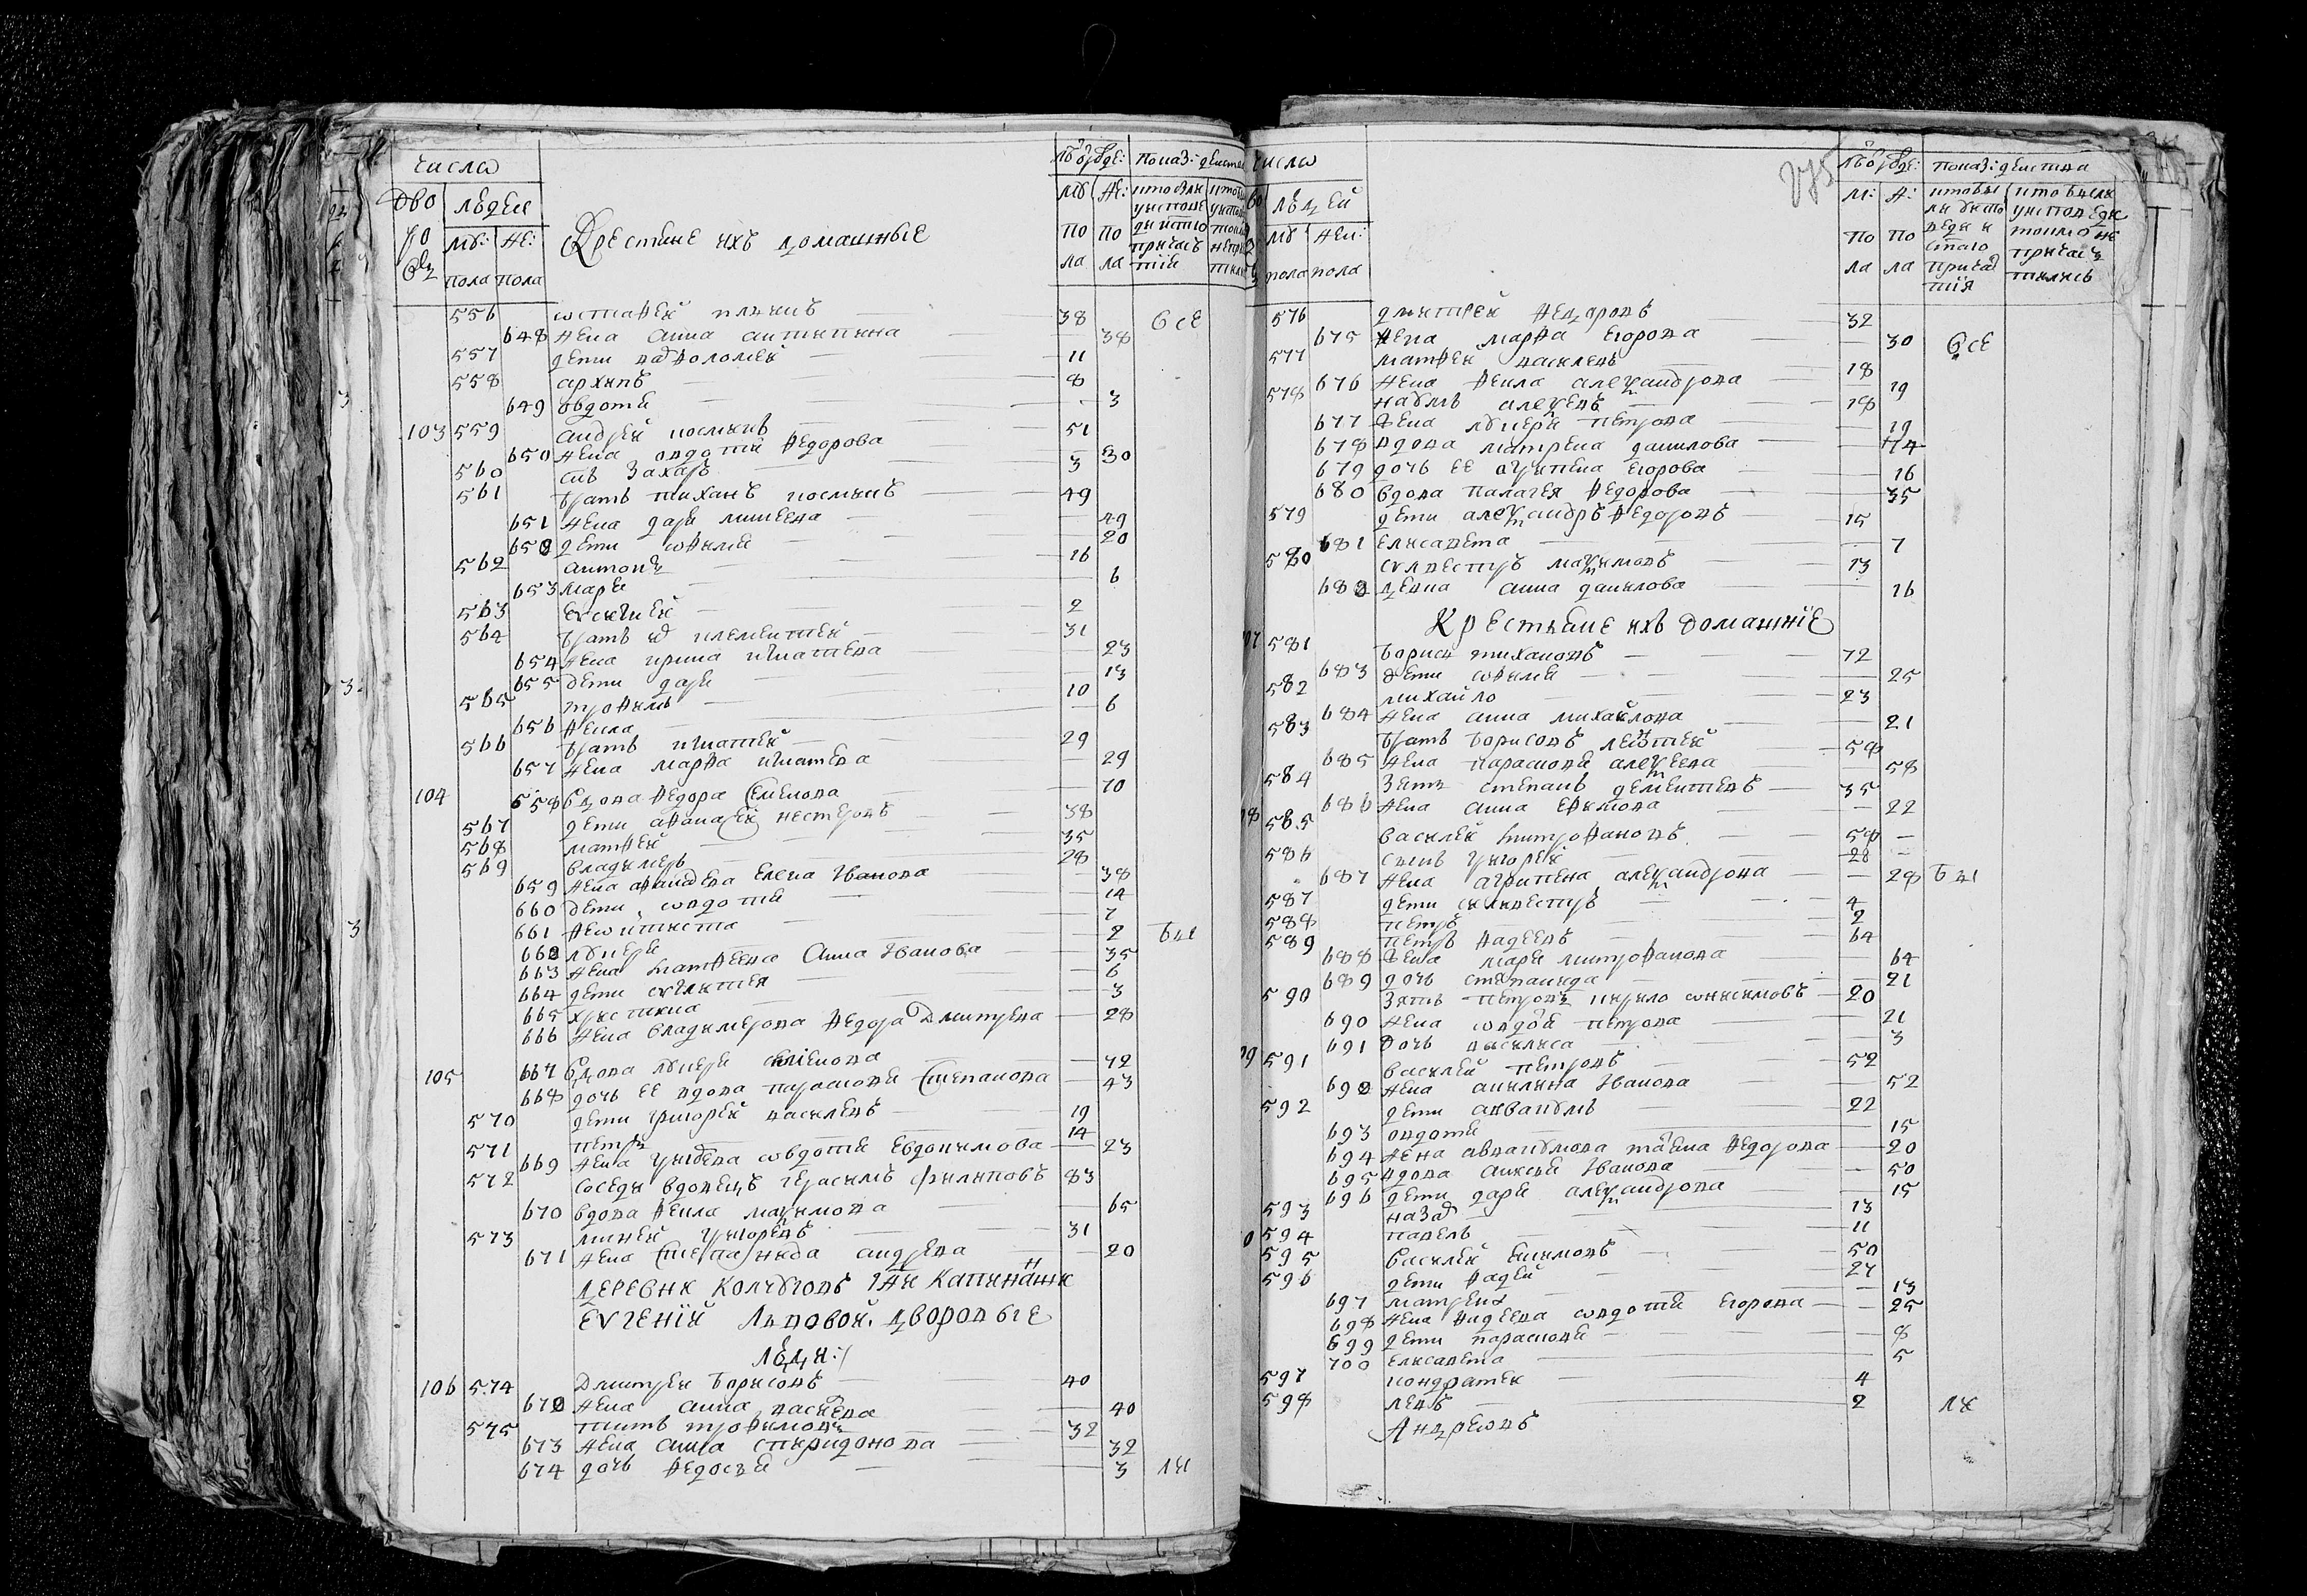 числа
дво ро въ
людей
мѹ: пола
же: пола
Крестяне ихъ домашные
лѣ: ѿ рожде:
мѹ по ла
же: по ла
показ: действа
556 остафей 38 все
648 жена анна антипина 38
557 дети варфоломей 11
558 архипъ 8
649 овдотя 3
103 559 андрей козминъ 51
650 жена овдотя федорова 30
560 снъ захаръ 3
561 братъ тиханъ козминъ 49
651 жена даря минеева 49
652 дети софия 20
562 антонъ 16
653 маря 6
563 евсигней 2
564 братъ их климентей 31
654 жена ирина игнатева 23
655 дети даря 13
565 трофимъ 10
656 фекла 6
566 братъ игнатей 29
657 жена марфа игнатева 29
104 658 вдова федора семенова 70
567 дети афанасей нестеровъ 38
568 матфей 35
569 владимеръ 28
659 жена афанасева елена иванова 38
660 дети овдотя 14
661 феоктиста 7
662 лукеря 2 бы
663 жена матфеева анна иванова 35
664 дети евгения 6
665 христина 3
666 жена владимерова федора дмитрева 28
105 667 вдова лукеря семенова 72
668 дочь ее вдова парасковя степанова 43
570 дети григорей василевъ 19
571 петръ 14
669 жена григорева овдотя евдокимова 23
572 соседи вдовецъ герасимъ филиповъ 83
670 вдова фекла маѯимова 65
573 миней григоревъ 31
671 жена степанида андрева 20
деревни колубовъ гжи капитанши
евгении львовой дворовые
люди:
106 574 дмитрей борисовъ 40
672 жена анна василева 40
575 титъ трофимовъ 32
673 жена анна спиридонова 32
674 дочь федосья 3 ли
275
числа
людей
мѹ пола
жен: пола
лѣ: ѿ рожде:
м: по ла
ж: по ла
показ: действа
кто были у исповеди и стаго причастия
кто были у исповеди токмо не причастились
576 дмитрей федоровъ 32
675 жена марфа егорова 30 все
577 матфей василевъ 18
676 жена фекла алеѯандрова 19
578 наумъ алеѯевъ 18
677 жена лукеря петрова 19
678 вдова матрена данилова 74
679 дочь ее агрипена егорова 16
680 вдова палагея федорова 35
579 дети алеѯандръ федоровъ 15
681 елисавета 7
580 силвестръ маѯимовъ 13
682 девка анна данилова 16
Крестьяне ихъ домашние
581 борисъ тихановъ 72
683 дети софия 25
582 михайло 23
684 жена анна михайлова 21
583 братъ борисовъ леонтей 58
685 жена парасковя алеѯеева 58
584 зять степанъ дементевъ 35
686 жена анна ефимова 22
585 василей митрофановъ 58
586 сынъ григорей 28
687 жена агрипена алеѯандрова 28 бы
587 дети силвестръ 4
588 петръ 2
589 петръ фадеевъ 64
688 жена маря митрофанова 64
689 дочь степанида 21
590 зять петровъ кирило онисимовъ 20
690 жена овдотя петрова 21
691 дочь василиса 3
591 василей петровъ 52
692 жена акилина иванова 52
592 дети авкакумъ 22
693 овдотя 15
694 жена авкакумова татиана федорова 20
695 вдова аксиня иванова 50
696 дети даря алеѯандрова 15
593 назар 13
594 павелъ 11
595 василей екимовъ 50
596 дети фадей 27
697 матрена 13
698 жена фадеева овдотя егорова 25
699 дети парасковя 8
700 елисавета 5
597 кондратей 4
598 левъ 2 ли
Андреовъ